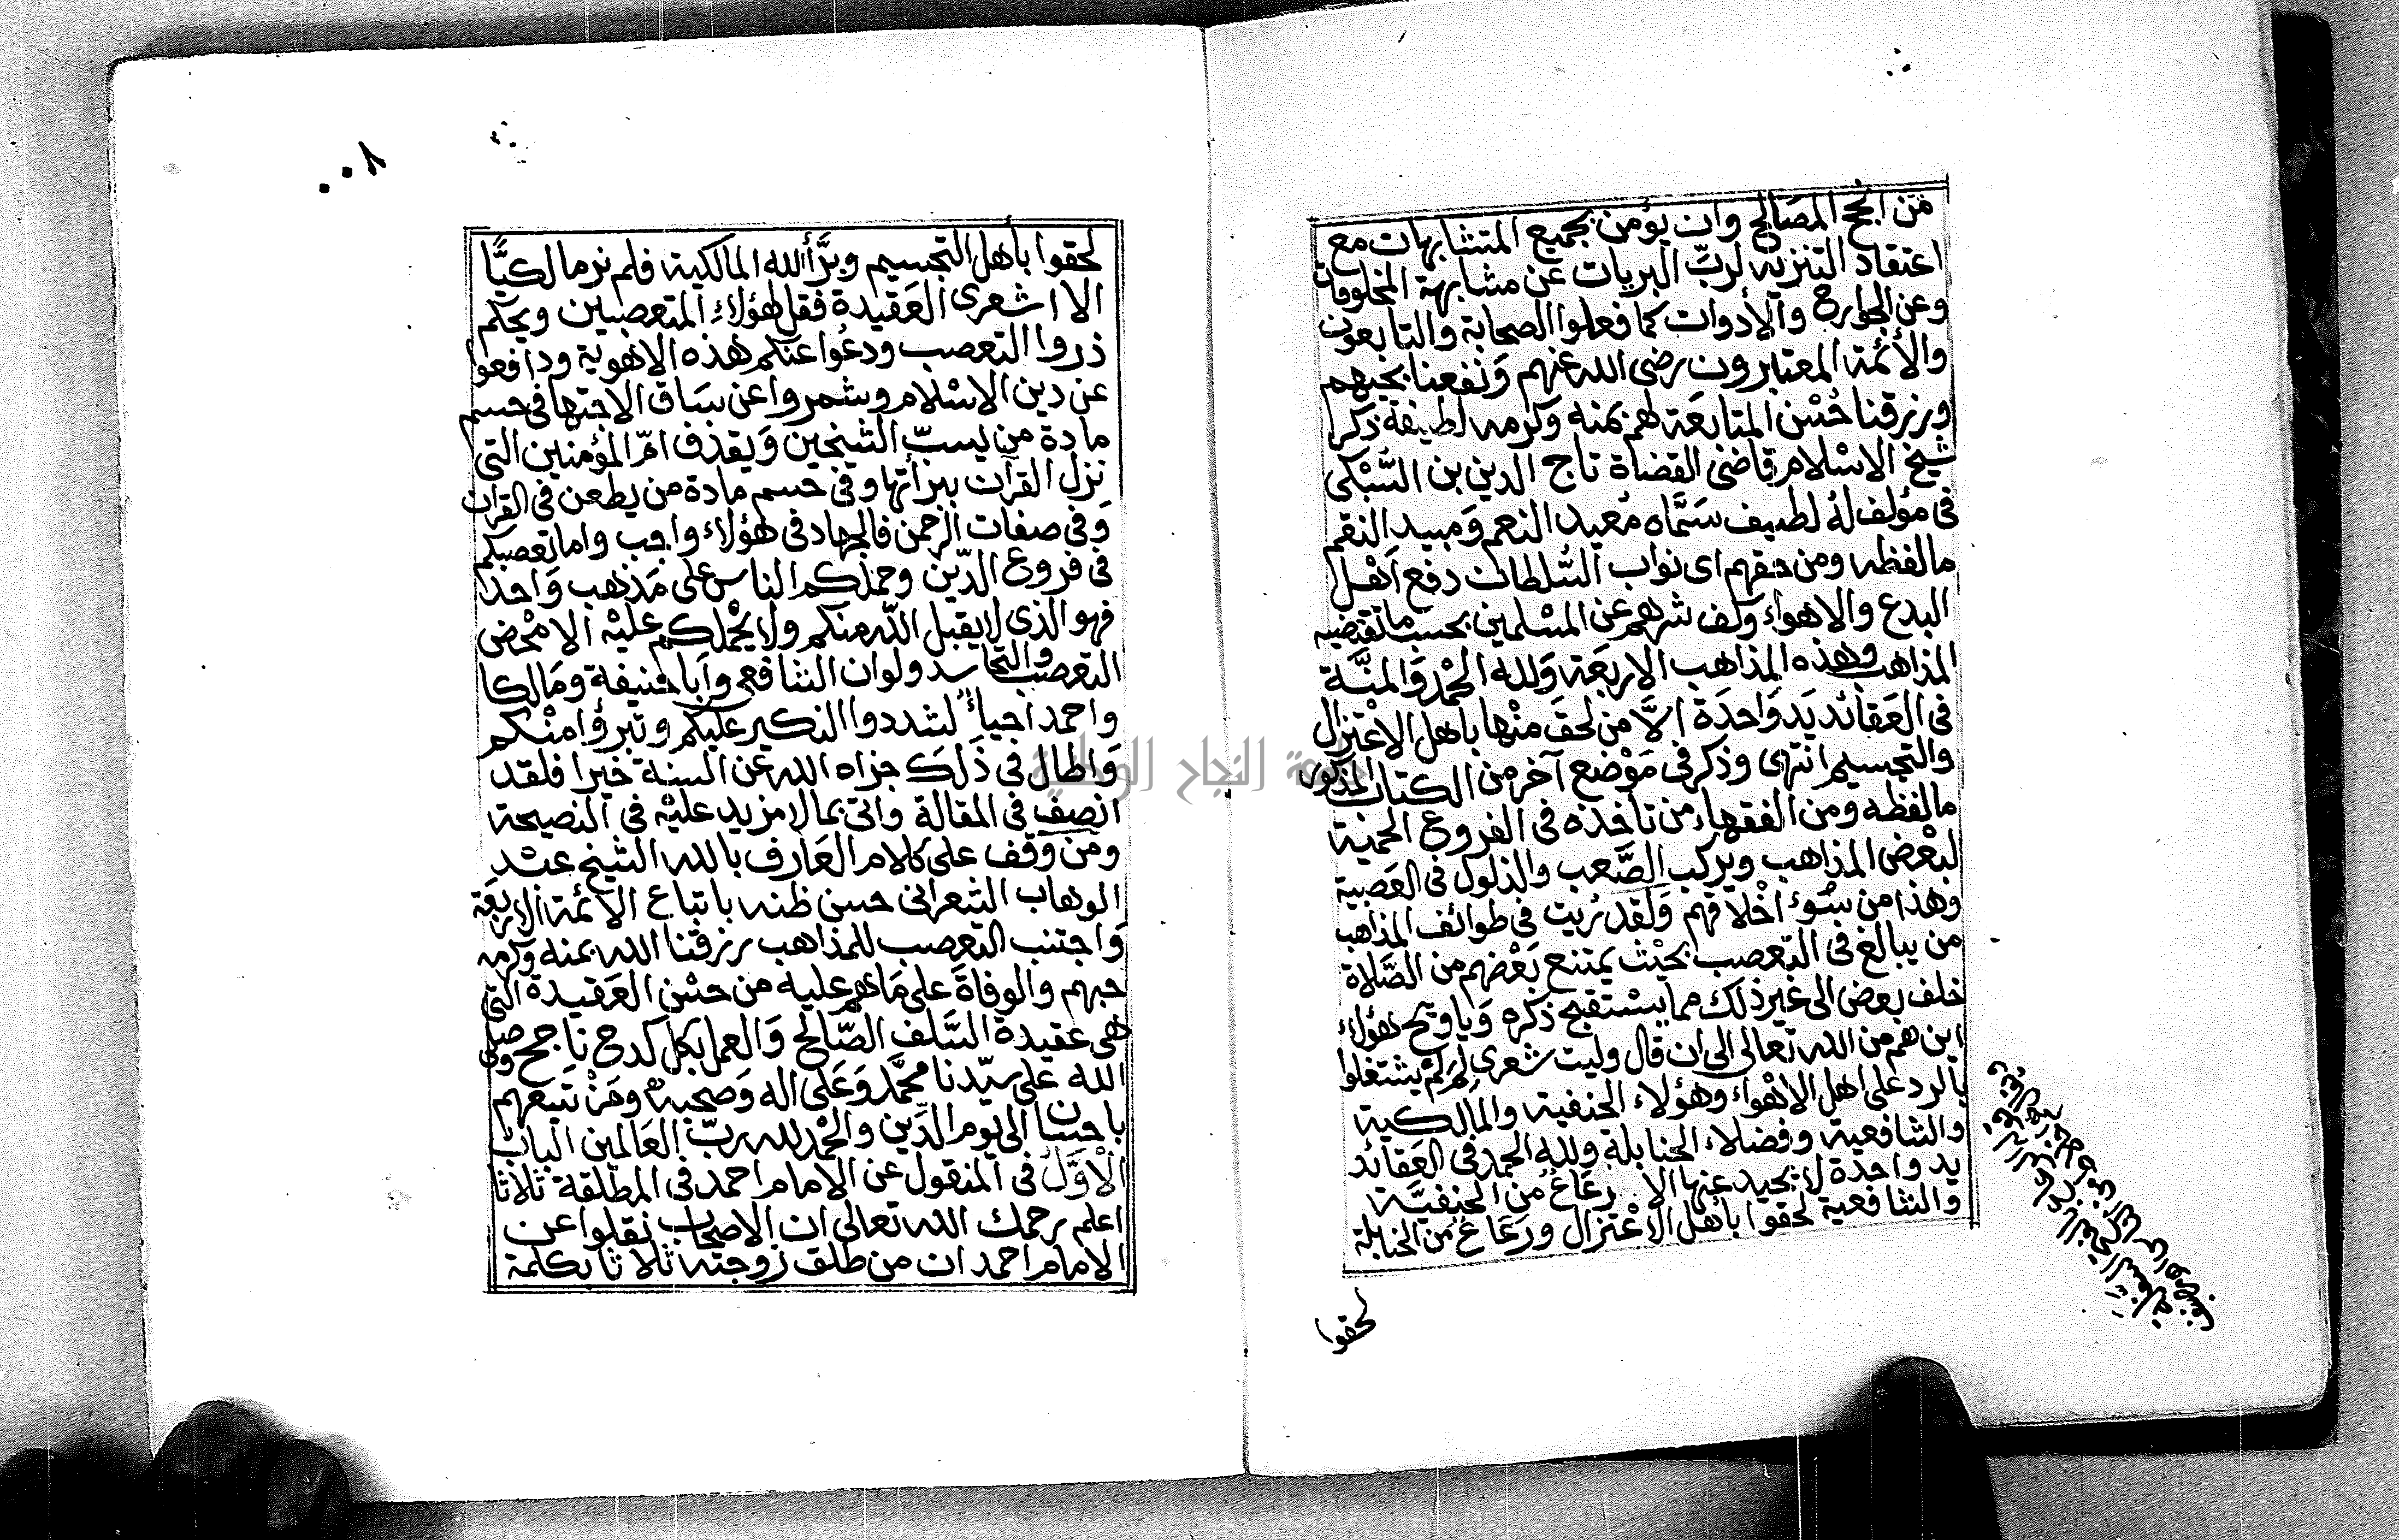 من انجح المصالح وان يؤمن بجميع المتشابهات مع
اعتقاد التنزيه لربّ البريات عن مشابهة المخلوقات
وعن الجوارح والأدوات كما فعلوا الصحابة والتابعون
والأئمة المعتبرون رضى الله عنهم ونفعنا بحبهم
ورزقنا حُسْن المتابعَة لهم بمنه وكرمه لطيفة ذكرا
شيخ الاسْلام قاضى القضاة تاج الدين بن السُّبْكى
فى مؤلف لهُ لطيف سَمَّاه مُعيد النعم وَمبيد النقم
مالفظه ومن حقهم اى نواب السُّلطان دفع اَهْل
البدع والاهواء وكف شرهم عن المسْلمين بحسب ما تقتضيه
المذاهب وهذه المذاهب الاربعَة وَلله الحمْد وَالمنَّة
فى العَقائد يَد وَاحدَة الاَّ من لحقَ منْها باهل الاعْتزال
والتجسيم انتهى وذكر فى مَوْضع آخر من الكتاب المذكور
مالفظه ومن الفقهاء من تاخذه فى الفروع الحمية
لبعْض المذاهب ويركب الصَّعب والذلول فى العَصبية
وهذا من سُوء اخْلاقهم وَلقد رُيت فى طوائف المذاهب
من يبالغ فى التعصب بحيْث يمتنع بَعْضهم من الصَّلاة
خلف بعض الى غير ذلك مما يسْتقبح ذكره وَيا ويح هؤلاء
اين هم من الله تعالى الى ان قال وليت شعرى لم لم يشتغلوا
بالرد على اهل الاهْواء وهؤلاء الحنفية والمالكية
والشافعية وفضلاء الحنابلة ولله الحمد فى العَقائد
يد واحدة لا يحيد عنها الا رعَاعٌ من الحنفيَّة
والشافعية لحقوا باهل الاعْتزال ورَعَاعٌ من الحنابلة
لحقوا
لحقوا بأهل التجسيم وبرَّأ الله المالكية فلم نر مالكيًّا
الا اشعرى العَقيدة فقل لهؤلاءِ المتعصبين ويحكم
ذروا التعصب ودعُوا عنكم هذه الاهوية ودافعوا
عن دين الاسْلام وشمروا عن سَاق الاجتها فى حسم
مادة من يسبّ الشيخين وَيقذف امّ المؤمنين التى
نزل القرآن ببرأتها وفى حسم مادة من يطعن فى القرآن
وَفى صفات الرحمن فالجهاد فى هؤلاء واجب واما تعصبكم
فى فروع الدّين وحملكم الناس على مَذهب وَاحد
فهو الذى لا يقبل اللّه منكم ولا يحْملكم عليْه الا محْض
التعصب والتحاسد ولو ان الشافعى وابا حنيفة ومَالكا
واحمد احياءٌ لشددوا النكير عليكم وتبرؤا منْكم
وَاطال فى ذَلكَ جزاه الله عن السنة خيرا فلقد
انصف فى المقالة وَاتى بما لا مزيد عليْه فى النصيحة
ومَن وَقف على كلام العَارف بالله الشيخ عبْد
الوهاب الشعرانى حسن ظنه باتباع الأئمة الاربعَة
وَاجتنب التعصب للمذاهب رزقنا الله بمنه وكرمه
حبهم والوفاة على مَا هم عليه من حسْن العَقيدة التى
هى عقيدة السَّلف الصَّالح وَالعمل بكل كدح ناجح وصلى
الله على سيّدنا محمَّد وَعَلى اله وَصحبه ومَنْ تبعهم
باحسان الى يوم الدّين والحمْد لله ربّ العَالمين الباب
الاَوَّل فى المنقول عن الامام احمد فى المطلقة ثلاثا
اعلم رحمك الله تعالى ان الاصحاب نقلوا عن
الامام احمد ان من طلق زوجته ثلاثا بكلمة
جامعة النجاح الوطنية